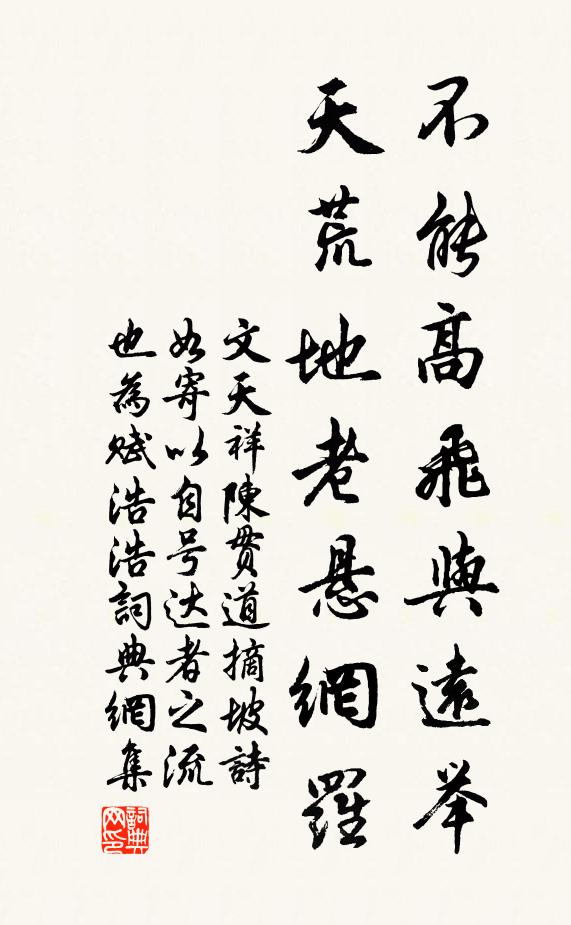 不能高飛與遠举
天荒地老悬網羅
文天祥陳貫道摘坡詩
如寄以自号达者之流
也為赋浩浩詞典網集
詞典网印